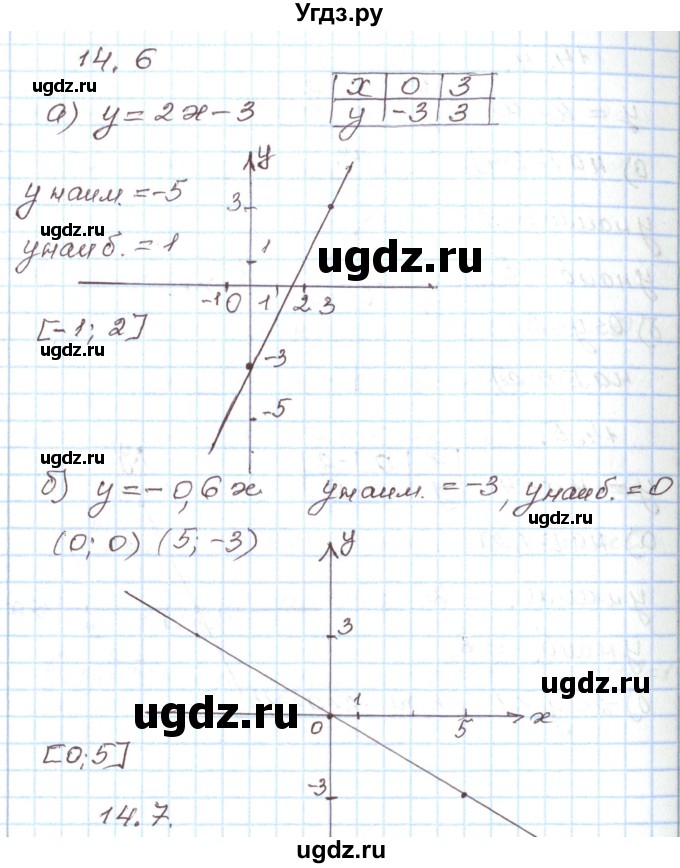 Угдз.ру
14.6
ugdz.ru
а) y = 2x - 3
x 0 3
y -3 3
y
y наим. = -5
3
ugdz.ru
y наиб. = 1
1
ugdz.ru
-1 0 1 2 3
[-1; 2]
ugdz.ru
-3
-5
ugdz.ru
б) y = -0,6x y наим. = -3, y наиб. = 0
ugdz.ru
(0; 0) (5; -3)
y
3
ugdz.ru
ugdz.ru
1
0 5 x
[0; 5]
ugdz.ru
-3
14.7.
ugdz.ru
ugdz.ru